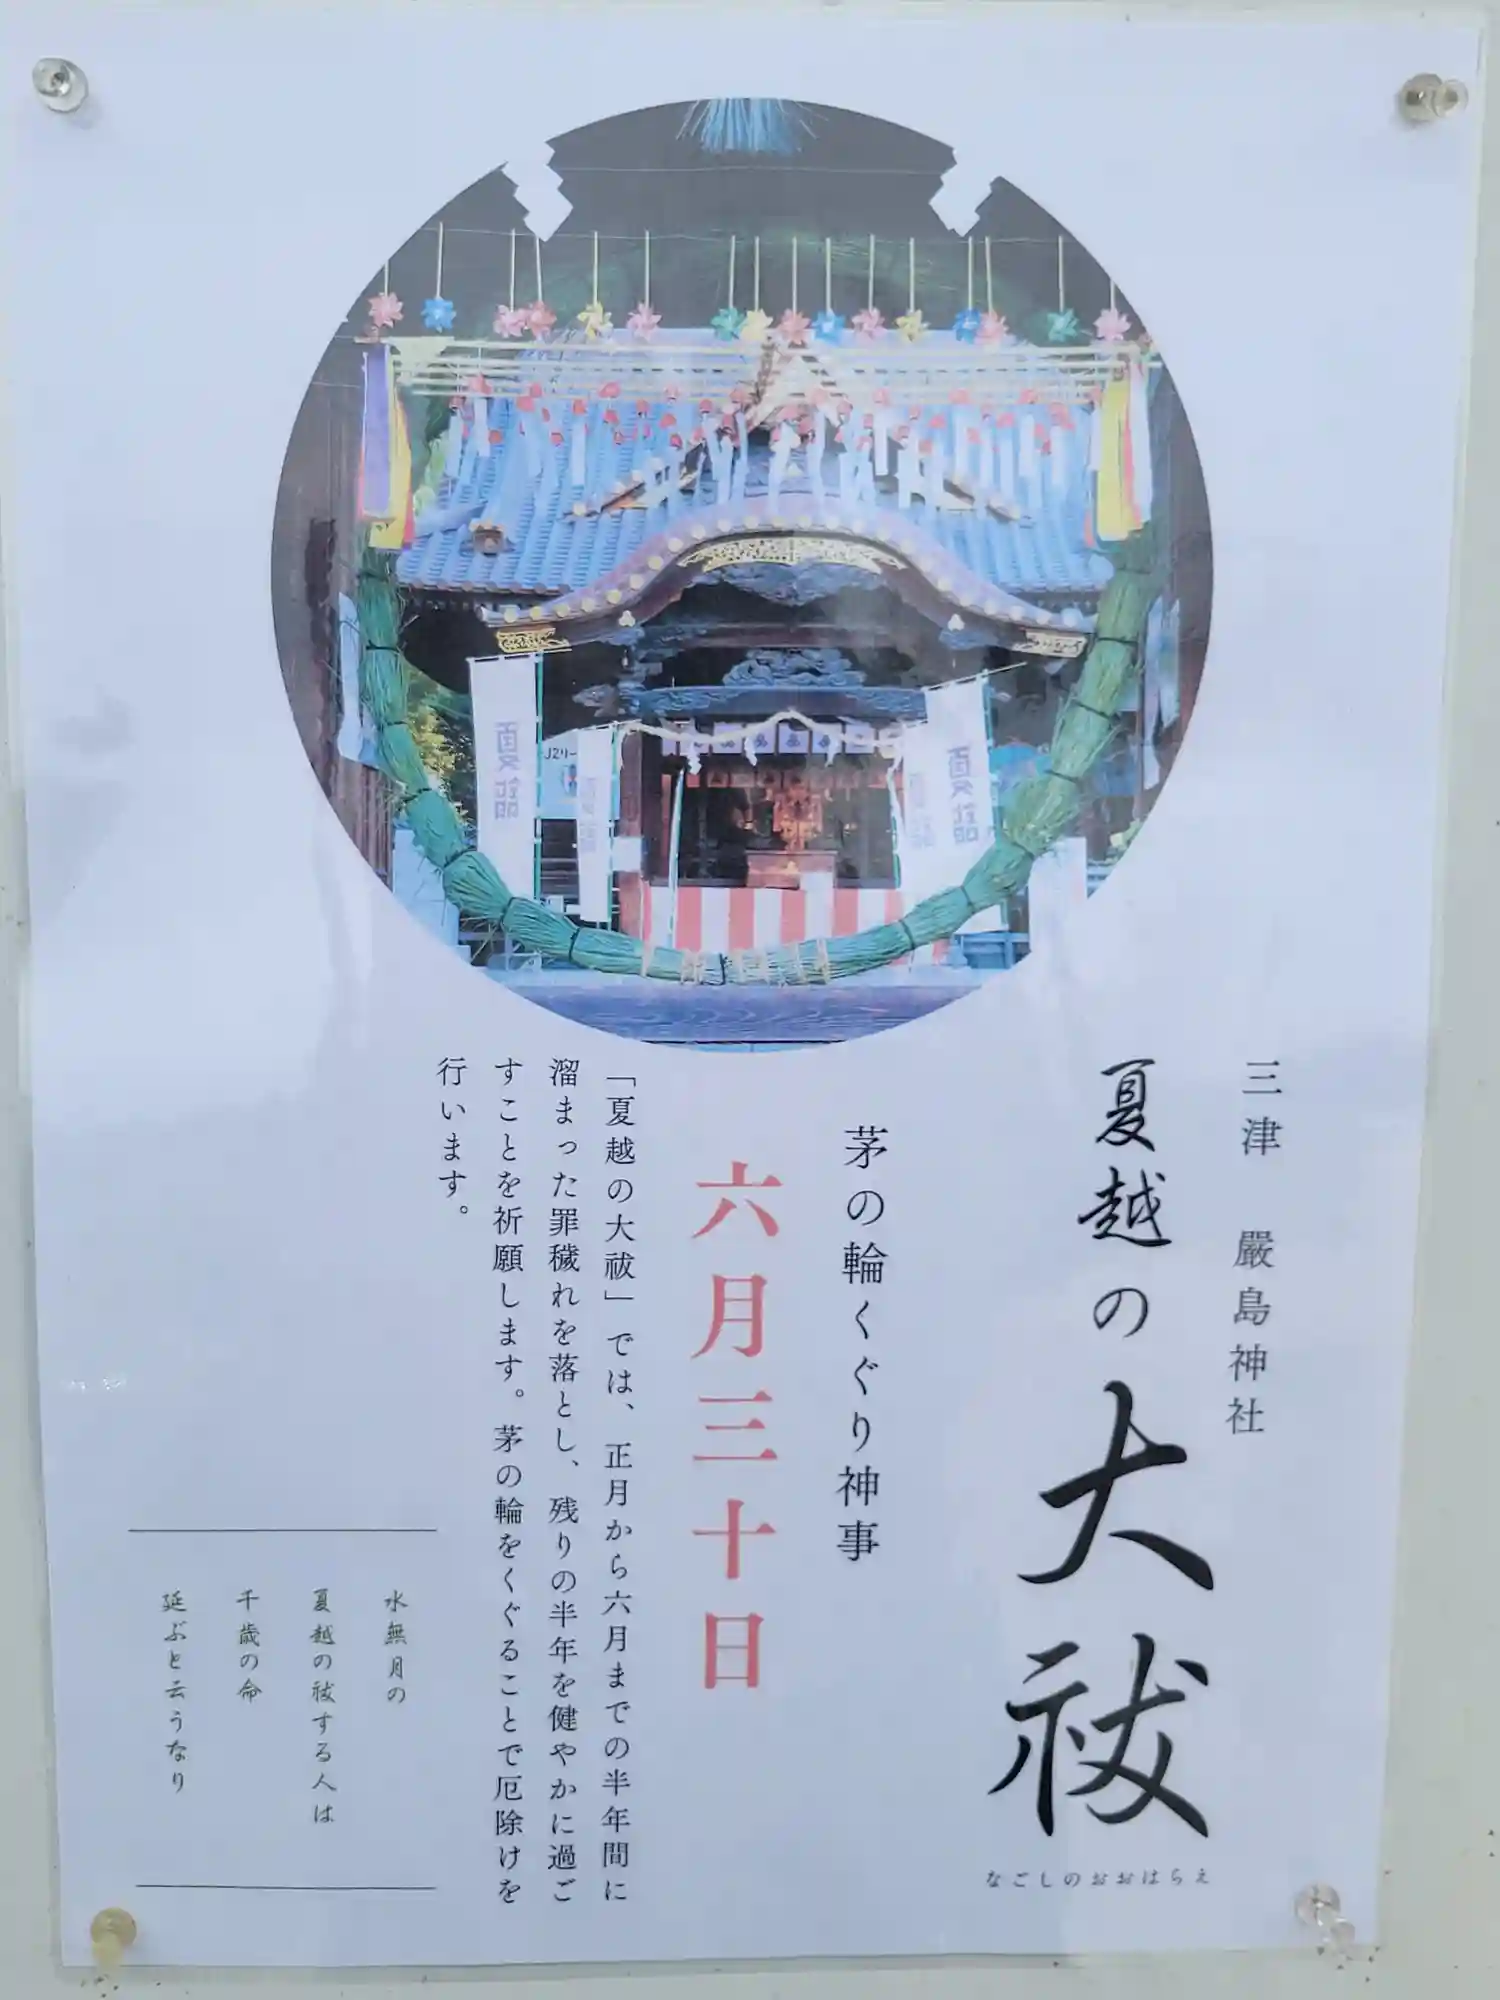 三津 嚴島神社
夏越の大祓
なごしのおおはらえ
茅の輪くぐり神事
六月三十日
「夏越の大祓」では、正月から六月までの半年間に
溜まった罪穢れを落とし、残りの半年を健やかに過ご
すことを祈願します。茅の輪をくぐることで厄除けを
行います。
水無月の
夏越の祓する人は
千歳の命
延ぶと云うなり